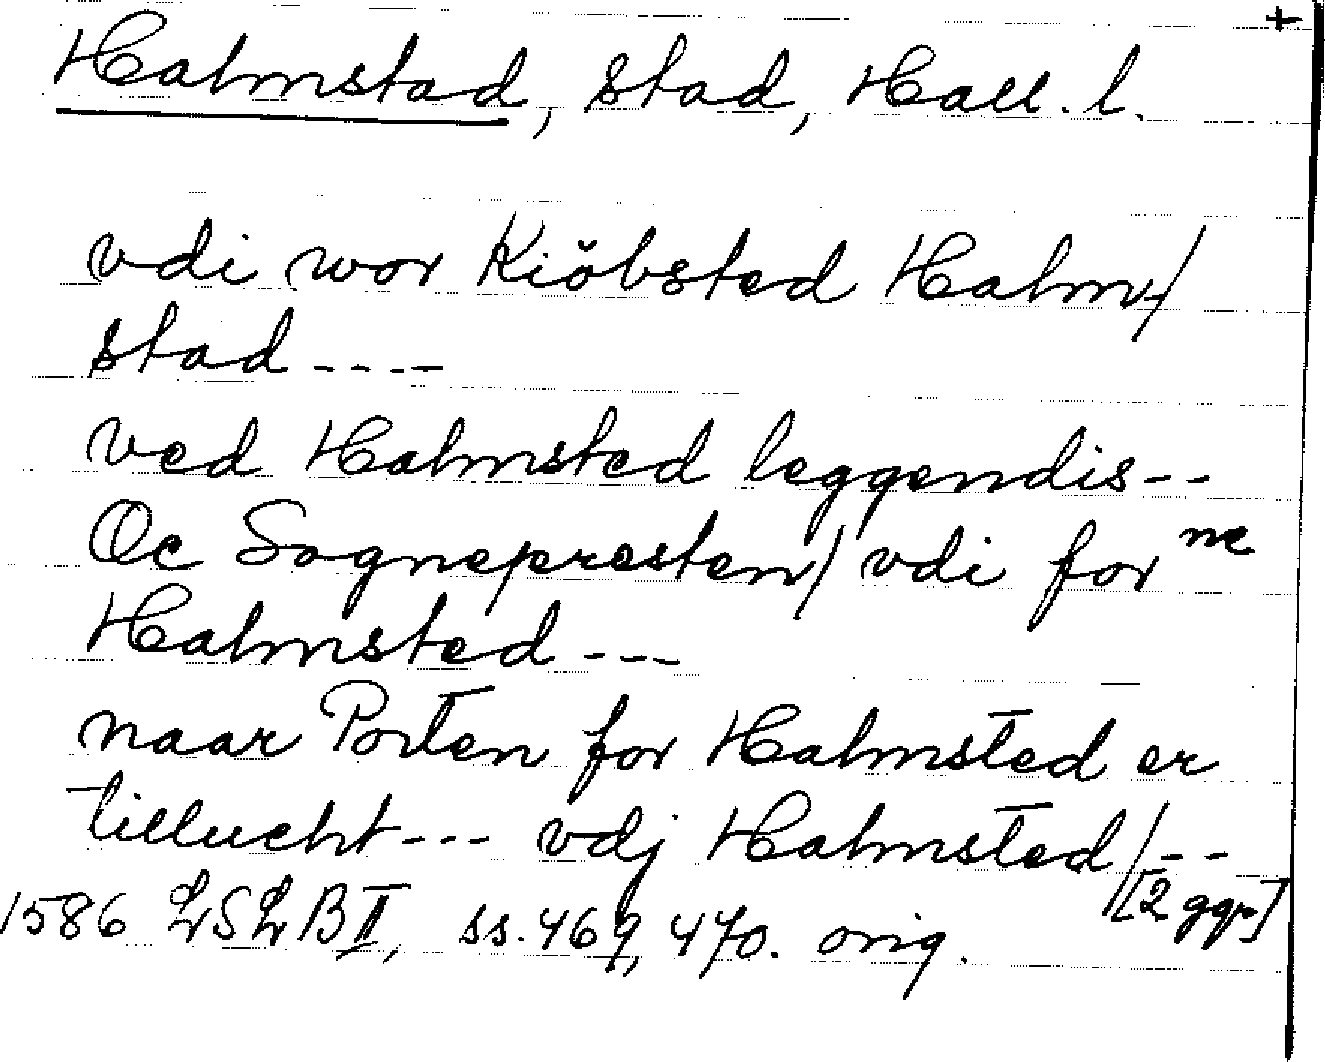 +
Halmstad, stad, Hall. l.
vdi wor Kiöbsted Halm/
stad ----
ved Halmsted leggendis--
Oc Sognepresten/ vdi for ne
Halmsted ---
naar Porten for Halmsted er
tillucht--- vdj Halmsted/--
[2 ggr]
1586 LSLB II, ss. 469, 470. orig.